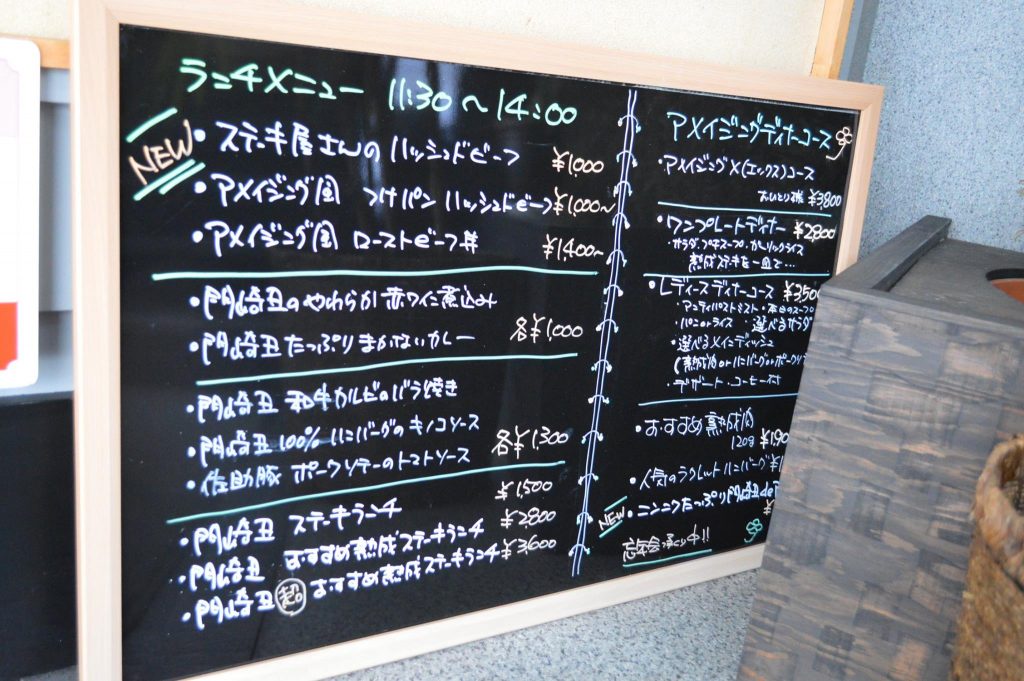 ランチメニュー 11:30〜14:00
NEW
・ステーキ屋さんのハッシュドビーフ ¥1,000
・アメイジング風 つけパン ハッシュドビーフ ¥1,000〜
・アメイジング風 ローストビーフ丼 ¥1,400〜
・門崎丑のやわらか赤ワイン煮込み
・門崎丑たっぷりまかないカレー 各¥1,000
・門崎丑 和牛カルビのバラ焼き
・門崎丑 100% ハンバーグのキノコソース
・佐助豚 ポークソテーのトマトソース 各¥1,300
・門崎丑 ステーキランチ ¥1,500
・門崎丑 おすすめ熟成ステーキランチ ¥2,800
・門崎丑 超 おすすめ熟成ステーキランチ ¥3,600
アメイジングディナーコース
・アメイジングX(エックス)コース
おひとり様 ¥3,800
・ワンプレートディナー ¥2,800
・サラダ・プチスープ・ガーリックライス
熟成ステーキを一皿で…
・レディースディナーコース ¥3,50
・アンティパストミスト・本日のスープ
・パンorライス ・選べるサラダ
・選べるメインディッシュ
(熟成肉orハンバーグorポークソ
・デザート・コーヒー付
・おすすめ熟成肉
120g ¥1,90
・人気のラクレットハンバーグ ¥1
NEW
・ニンニクたっぷり門崎丑de
¥
忘年会承り中!!